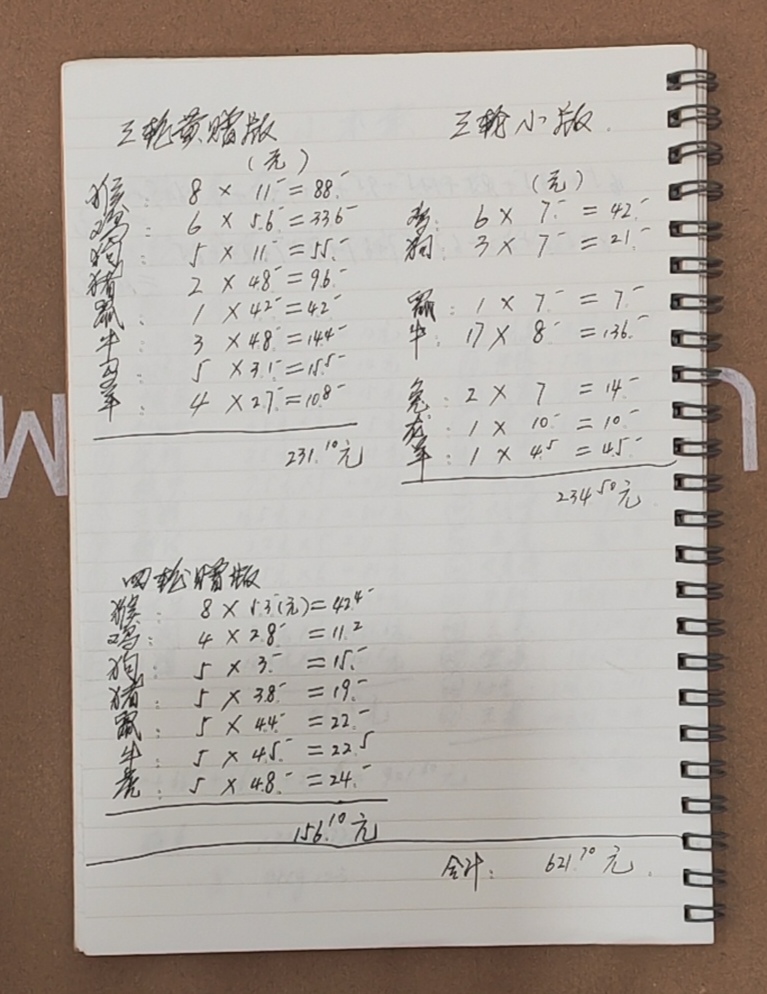 三轮黄赠版
(元)
猴: 8 × 11.- = 88.-
鸡: 6 × 5.6- = 33.6-
狗: 5 × 11.- = 55.-
猪: 2 × 4.8- = 9.6-
鼠: 1 × 4.2- = 4.2-
牛: 3 × 4.8- = 14.4-
马: 5 × 3.1- = 15.5-
羊: 4 × 2.7- = 10.8-
231.10元
三轮小版
(元)
鸡: 6 × 7.- = 42.-
狗: 3 × 7.- = 21.-
鼠: 1 × 7.- = 7.-
牛: 17 × 8.- = 136.-
兔: 2 × 7 = 14.-
龙: 1 × 10.- = 10.-
羊: 1 × 4.5 = 4.5-
234.50元
四轮赠版
猴: 8 × 5.3(元) = 42.4-
鸡: 4 × 2.8- = 11.2
狗: 5 × 3.- = 15.-
猪: 5 × 3.8- = 19.-
鼠: 5 × 4.4- = 22.-
牛: 5 × 4.5- = 22.5
虎: 5 × 4.8- = 24.-
156.10元
合计: 621.70元.